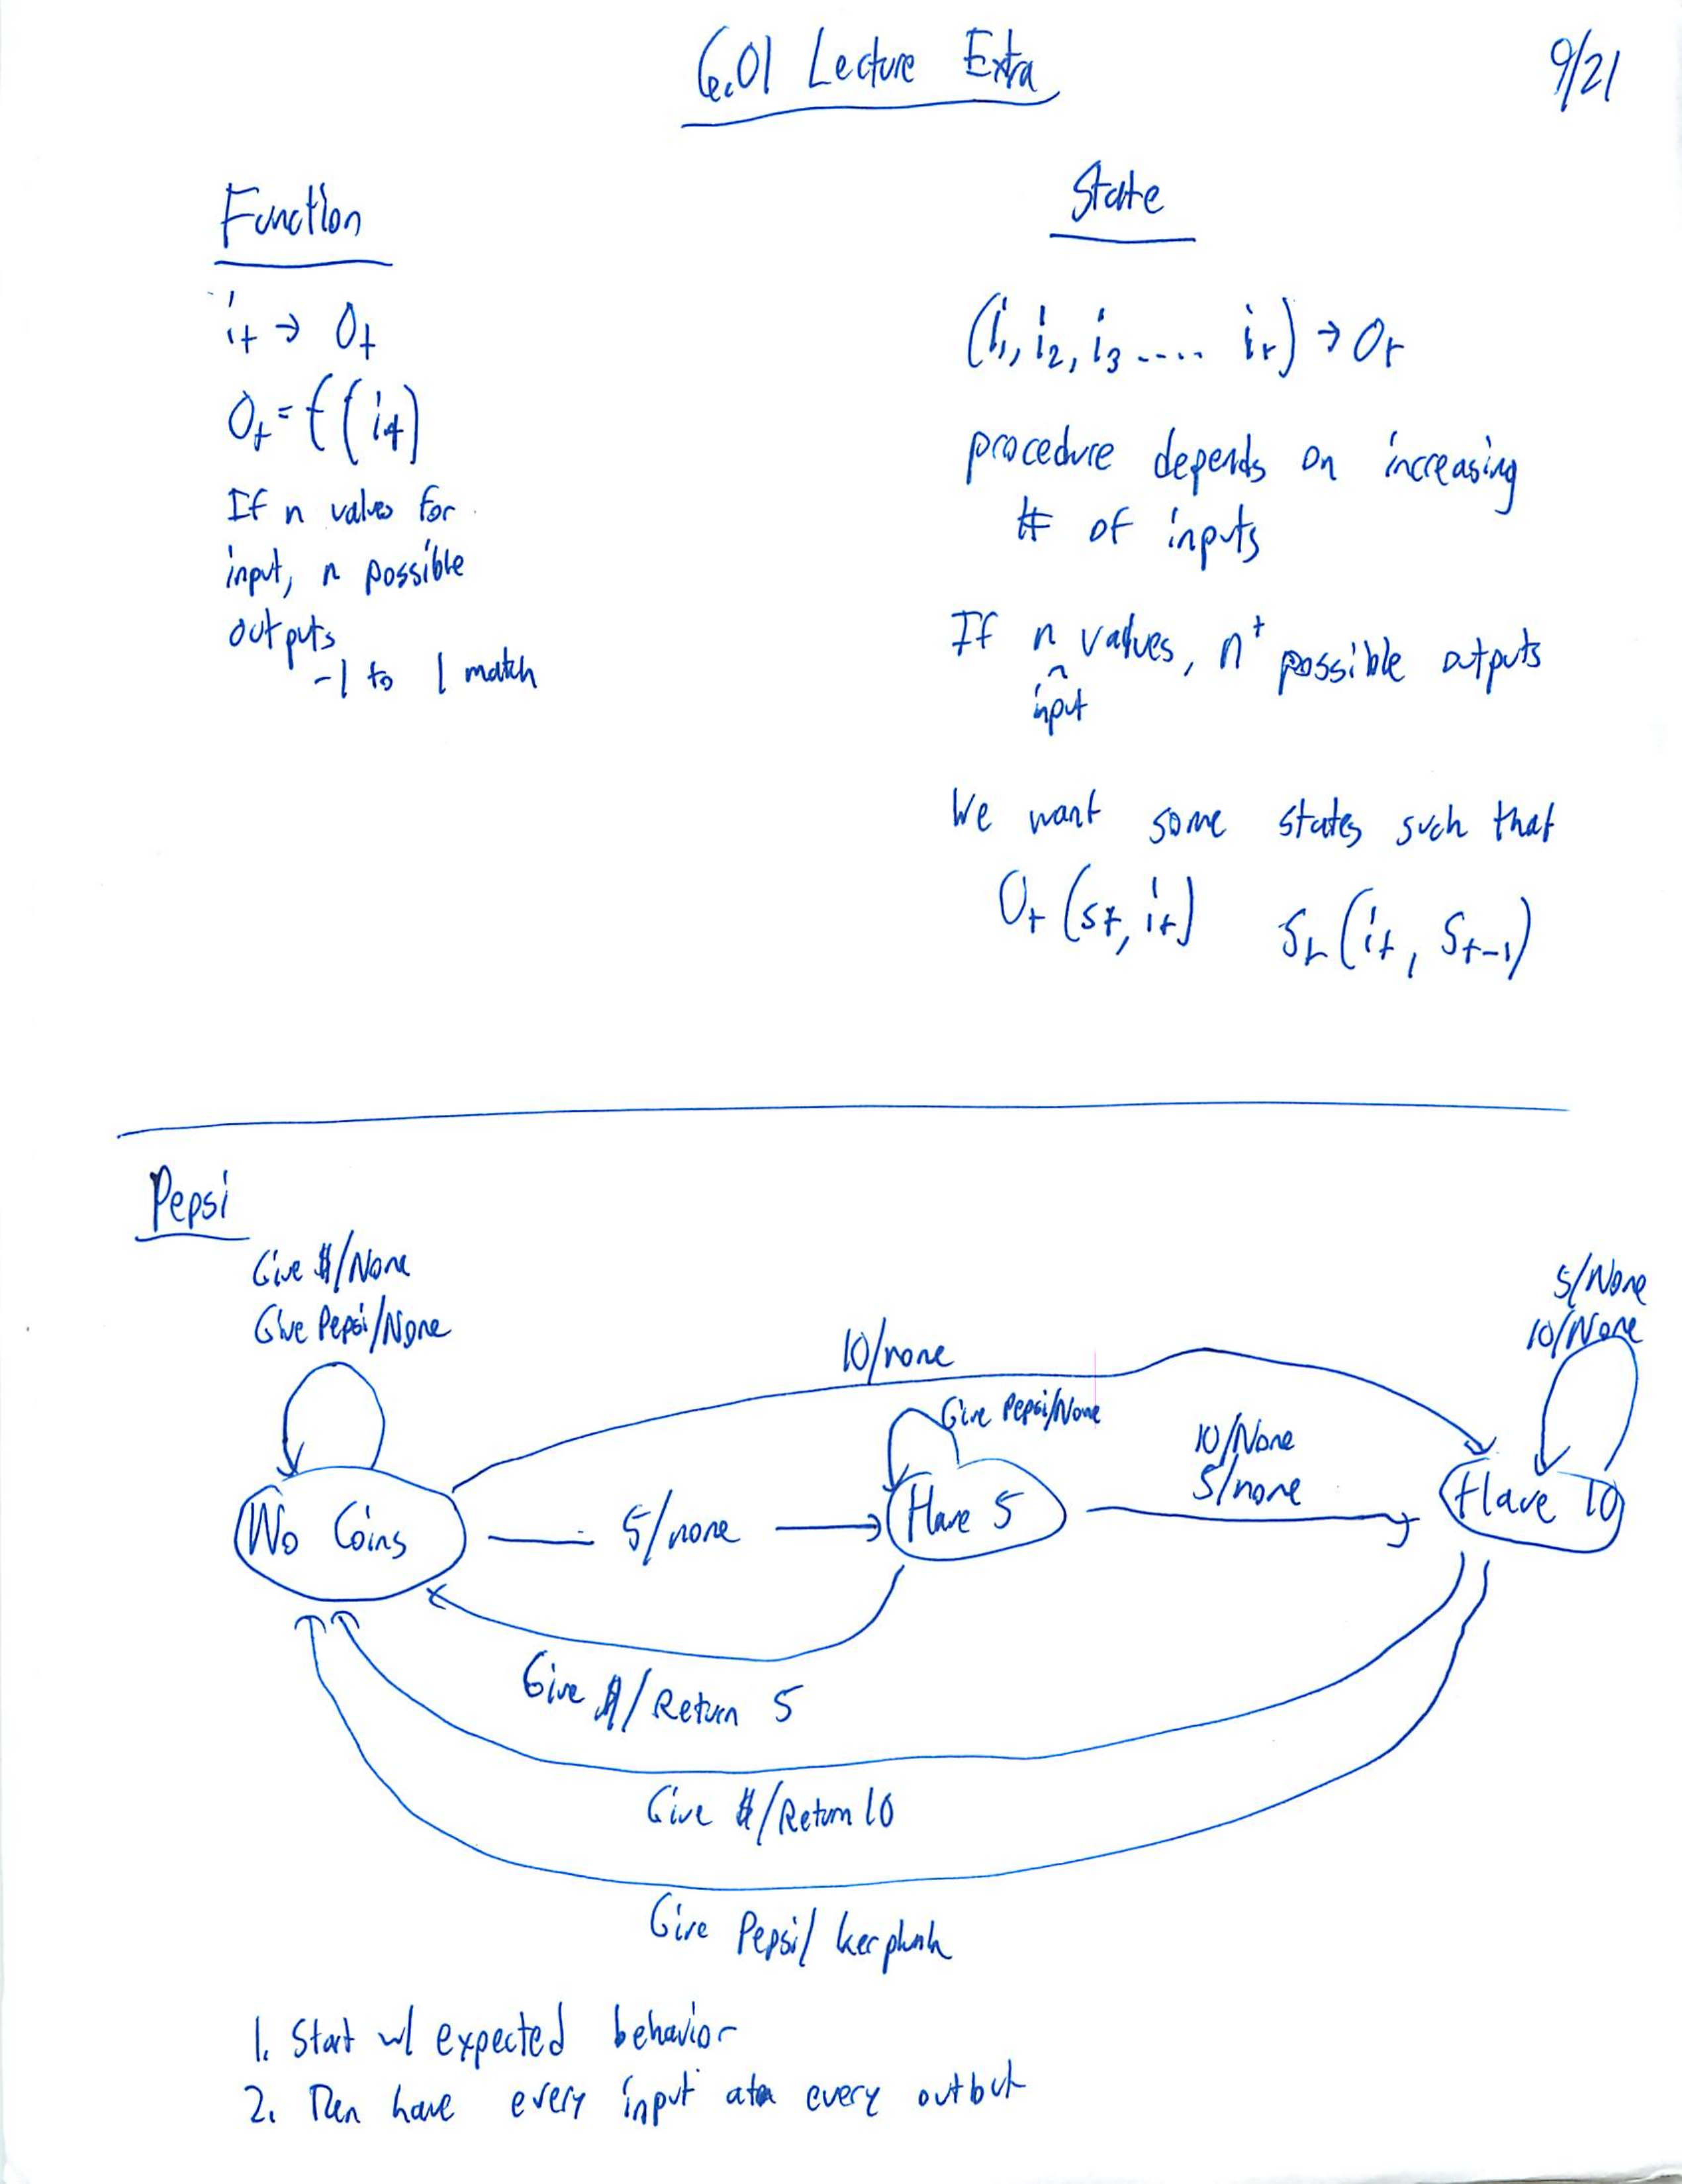 6.01 Lecture Extra
9/21
Function
i_t → O_t
O_t = f(i_t)
If n values for
input, n possible
outputs
-1 to 1 match
State
(i_1, i_2, i_3 .... i_t) → O_t
procedure depends on increasing
# of inputs
If n values, n^t possible outputs
^
input
We want some states such that
O_t (s_t, i_t) S_t (i_t, S_t-1)
Pepsi
Give $/None
Give Pepsi/None
5/None
10/None
10/none
Give Pepsi/None
10/None
5/none
No Coins
5/none
Have 5
Have 10
Give $/Return 5
Give $/Return 10
Give Pepsi/ kerplunk
1. Start w/ expected behavior
2. Then have every input every output